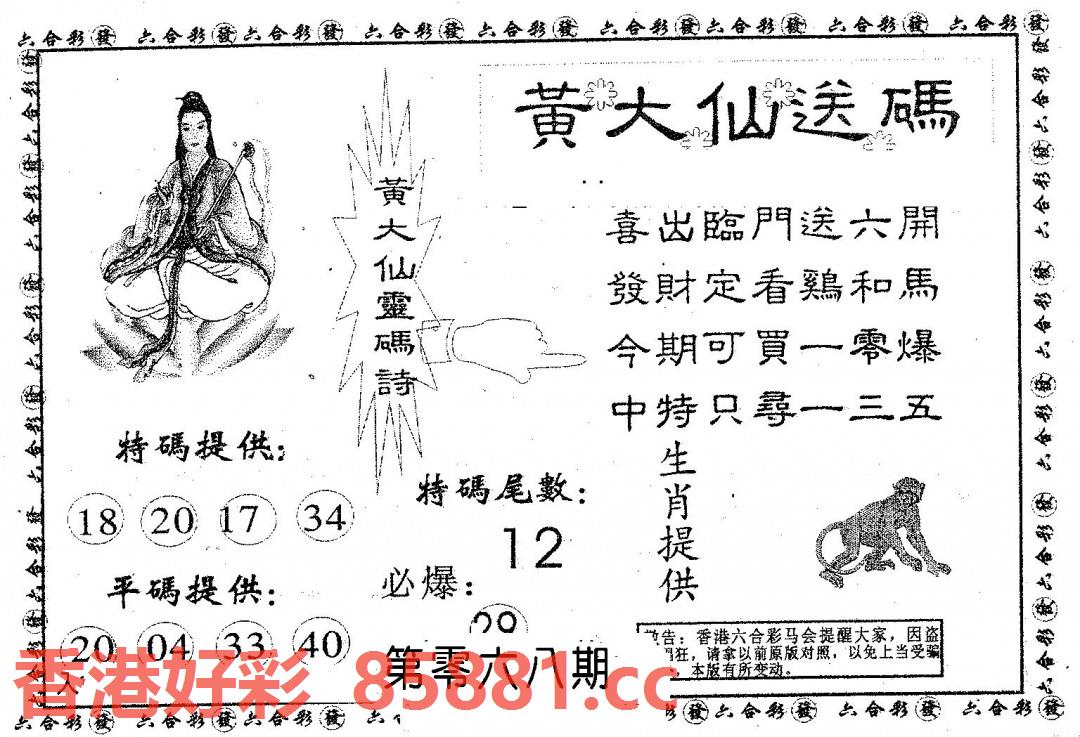 六合彩發 六合彩發六合彩發 六合彩發 六合彩發 六合彩發六合彩發 六合彩發 六合彩發
黃大仙送碼
黃大仙靈碼詩
喜出臨門送六開
發財定看鷄和馬
今期可買一零爆
中特只尋一三五
特碼提供：
18 20 17 34
平碼提供：
20 04 33 40
特碼尾數：
12
必爆：
生肖提供
第零六八期
告：香港六合彩马会提醒大家，因盗
狂，请拿以前原版对照，以免上当受骗
，本版有所变动。
香港好彩 85881.cc
六合彩發 六合彩發六合彩發 六 六合彩發 六合彩發 六合彩發